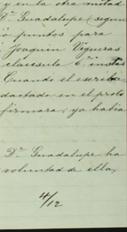 y en la otra mitad
Da Guadalupe, segun
o puntos para
Joaquin Vigueras
clausula
Cuando el escrito
dactado en el proto
firmara, ya habia
Da Guadalupe ha
voluntad de ella,
4/12